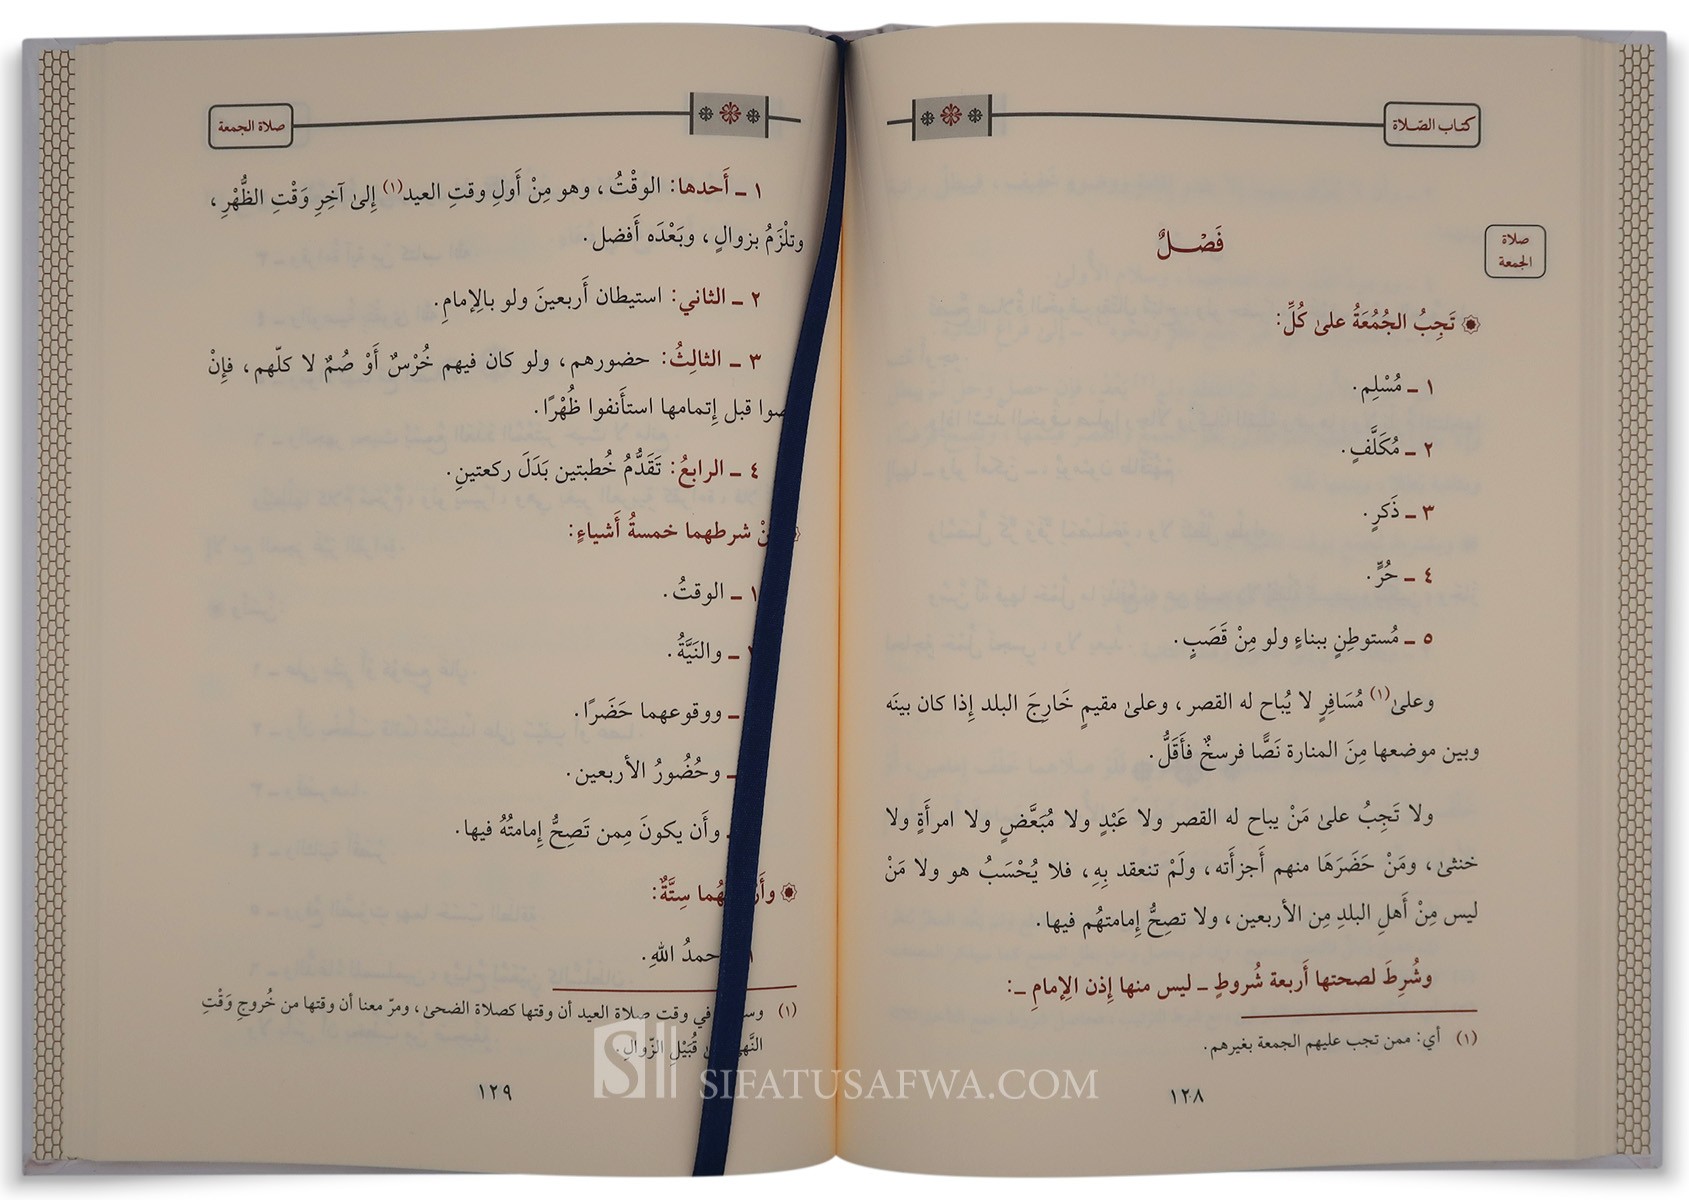 كتاب الصّلاة
صلاة
الجمعة
فَصْلٌ
تَجِبُ الجُمُعَةُ علىٰ كُلِّ:
١ ـ مُسْلِم.
٢ ـ مُكَلَّفٍ.
٣ ـ ذَكرٍ.
٤ ـ حُرٍّ.
٥ ـ مُستوطِنٍ ببناءٍ ولو مِنْ قَصَبٍ.
وعلىٰ(١) مُسَافِرٍ لا يُباح له القصر، وعلىٰ مقيمٍ خَارِجَ البلد إِذا كان بينَه
وبين موضعها مِنَ المنارة نَصًّا فرسخٌ فأَقَلُّ.
ولا تَجِبُ علىٰ مَنْ يباح له القصر ولا عَبْدٍ ولا مُبَعَّضٍ ولا امرأَةٍ ولا
خنثىٰ، ومَنْ حَضَرَهَا منهم أَجزأَته، ولَمْ تنعقد بِهِ، فلا يُحْسَبُ هو ولا مَنْ
ليس مِنْ أَهلِ البلدِ مِن الأربعين، ولا تصِحُّ إِمامتهُم فيها.
وشُرِطَ لصحتها أَربعة شُروطٍ ـ ليس منها إِذن الإِمامِ ـ:
(١) أي: ممن تجب عليهم الجمعة بغيرهم.
١٢٨
صلاة الجمعة
١ ـ أَحدها: الوقْتُ، وهو مِنْ أَولِ وقتِ العيد(١) إِلىٰ آخِرِ وَقْتِ الظُّهْرِ،
وتلْزَمُ بزوالٍ، وبَعْدَه أَفضل.
٢ ـ الثاني: استيطان أَربعينَ ولو بالإِمامِ.
٣ ـ الثالِثُ: حضورهم، ولو كان فيهم خُرْسٌ أَوْ صُمٌ لا كلّهم، فإِنْ
صوا قبل إِتمامها استأَنفوا ظُهْرًا.
٤ ـ الرابعُ: تَقَدُّمُ خُطبتين بَدَلَ ركعتينِ.
نْ شرطهما خمسةُ أَشياءٍ:
١ ـ الوقتُ.
ـ والنيَّةُ.
ـ ووقوعهما حَضَرًا.
ـ وحُضُورُ الأربعين.
ـ وأَن يكونَ مِمن تَصِحُّ إِمامتُهُ فيها.
وأَر هُما سِتَّةٌ:
١ حمدُ اللهِ.
(١) وس في وقت صلاة العيد أن وقتها كصلاة الضحىٰ، ومرّ معنا أن وقتها من خُروجِ وَقْتِ
النَّه قُبَيْلِ الزّوالِ.
١٢٩
SIFATUSAFWA.COM